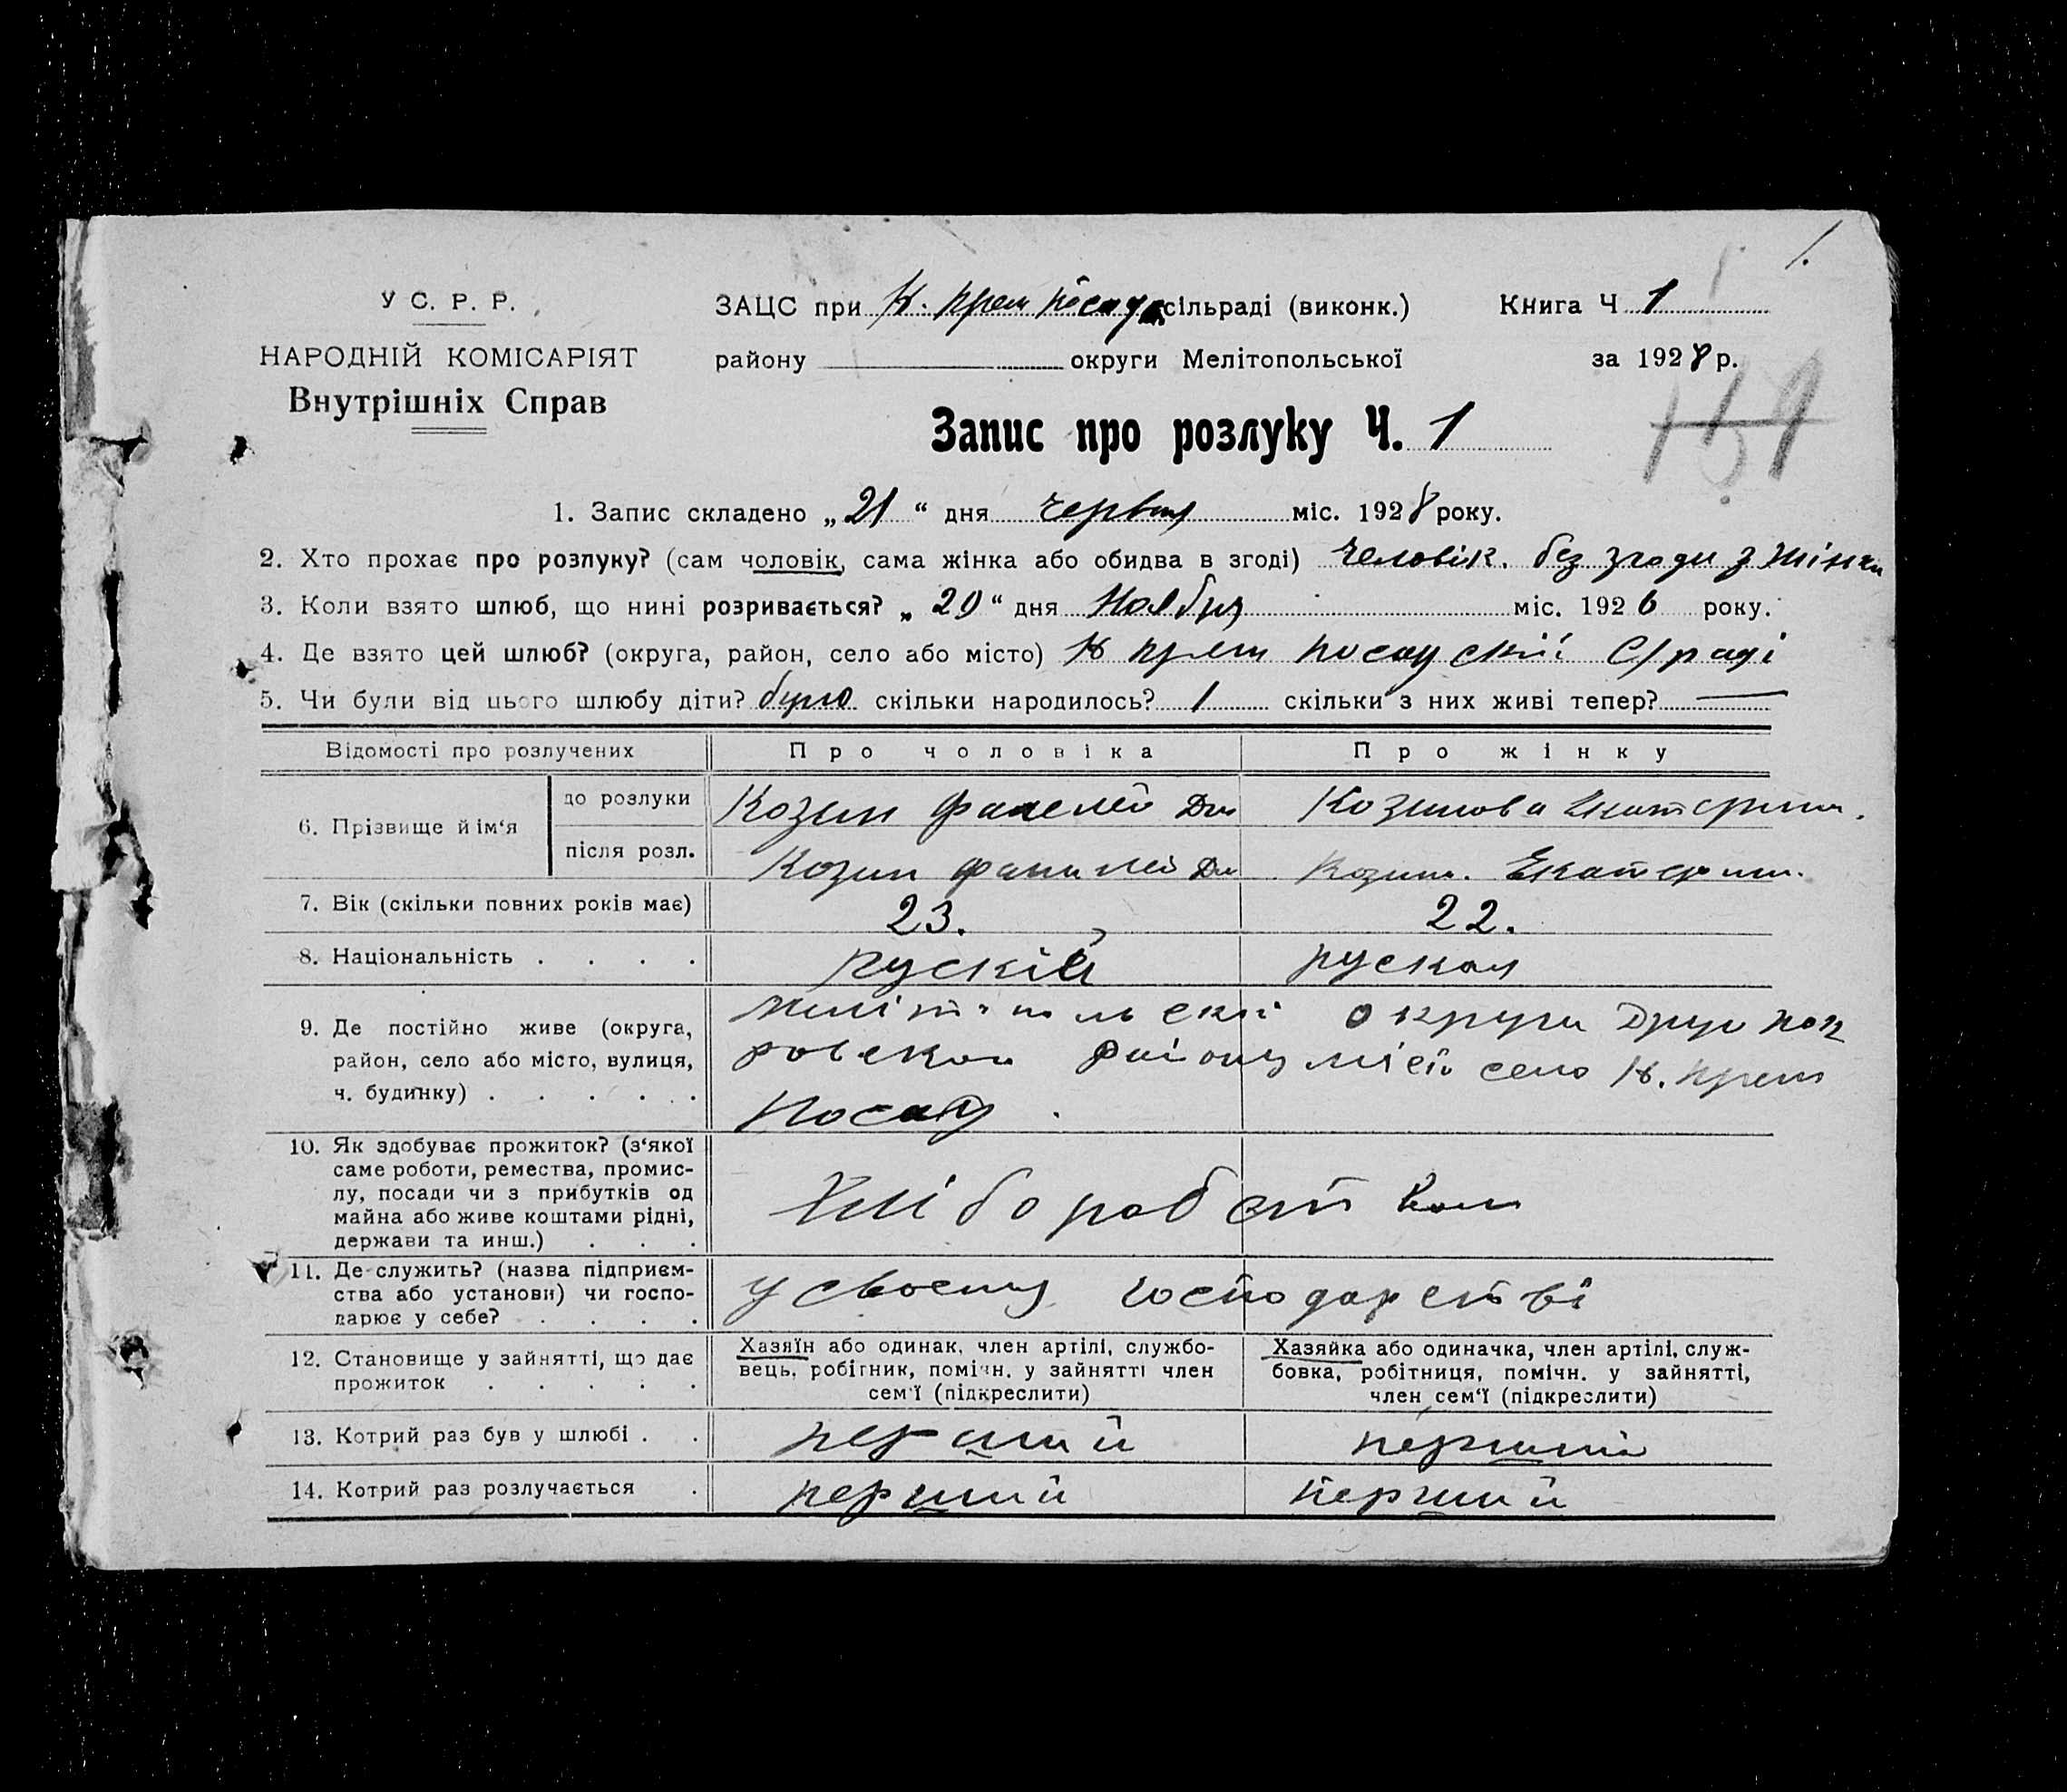 1.
У С. Р. Р.
НАРОДНІЙ КОМІСАРІЯТ
Внутрішніх Справ
ЗАЦС при Н. прем посад сільраді (виконк.) Книга Ч 1
району округи Мелітопольської за 1928 р.
159
Запис про розлуку Ч. 1
1. Запис складено „21“ дня червня міс. 1928 року.
2. Хто прохає про розлуку? (сам чоловік, сама жінка або обидва в згоді) человік. без згоди з жінки
3. Коли взято шлюб, що нині розривається? „20“ дня Ноября міс. 1926 року.
4. Де взято цей шлюб? (округа, район, село або місто) Н прем посадскії С/раді
5. Чи були від цього шлюбу діти? було скільки народилось? 1 скільки з них живі тепер? —
Відомості про розлучених Про чоловіка Про жінку
6. Прізвище й ім‘я
до розлуки Козин Козинова Екатерина.
після розл. Козин Козин. Екатерин.
7. Вік (скільки повних років має) 23. 22.
8. Національність . . . . рускій руская
9. Де постійно живе (округа, район, село або місто, вулиця, ч. будинку) . . . . .
округи Друго пок
ровскои району село Н. прем
Посад .
10. Як здобуває прожиток? (з‘якої
саме роботи, ремества, промис-
лу, посади чи з прибутків од
майна або живе коштами рідні,
держави та инш.) . . .
Хліборобст вом
11. Де служить? (назва підприєм-
ства або установи) чи госпо-
дарює у себе? . . . .
у своему господарстві
12. Становище у зайнятті, що дає
прожиток . . . . .
Хазяїн або одинак, член артілі, службо-
вець, робітник, помічн. у зайнятті член
сем‘ї (підкреслити)
Хазяйка або одиначка, член артілі, служ-
бовка, робітниця, помічн. у зайнятті,
член сем‘ї (підкреслити)
13. Котрий раз був у шлюбі . . перший перший
14. Котрий раз розлучається . перший перший